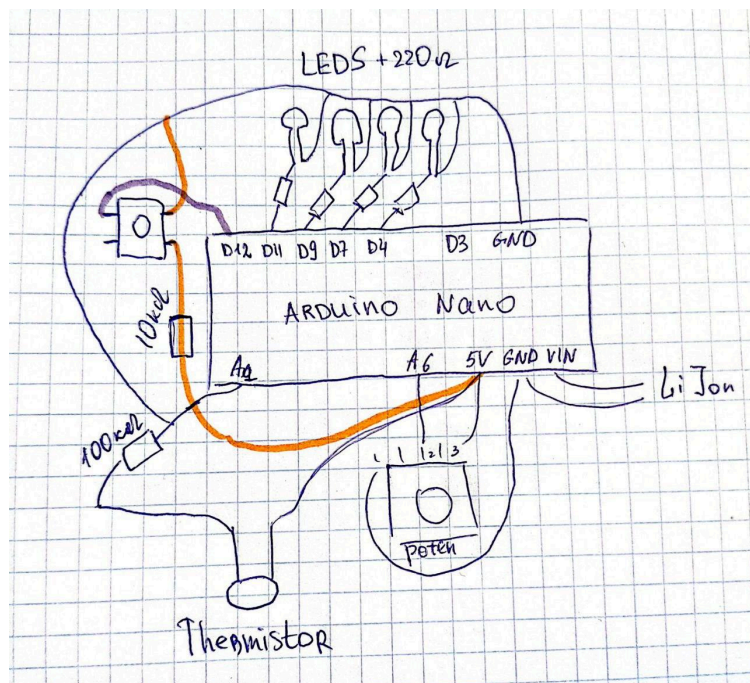 LEDS + 220Ω
D12 D11 D9 D7 D4 D3 GND
ARDUINO Nano
10kΩ
A1 A6 5V GND VIN
Li Ion
100kΩ
1 2 3
poten
Thermistor